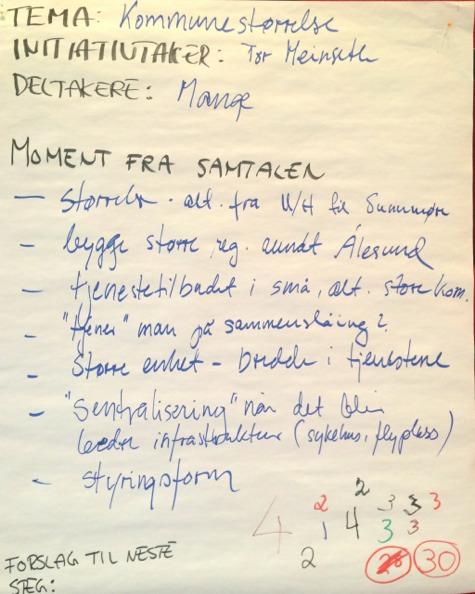 TEMA: Kommunestørrelse
INITIATIVTAKER: Tor Meinseth
DELTAKERE: Mange
MOMENT FRA SAMTALEN
– Størrelse - alt. fra U/H til Sunnmøre
– bygge større reg. rundt Ålesund
– tjenestetilbudet i små, alt. store kom.
– "tjener" man på sammenslåing?
– Større enhet – bredde i tjenestene
– "Sentralisering" når det blir
bedre infrastruktur (sykehus, flyplass)
– styringsform
2 2 3 3 3
4 1 4 3 3
2 28 30
FORSLAG TIL NESTE
STEG: